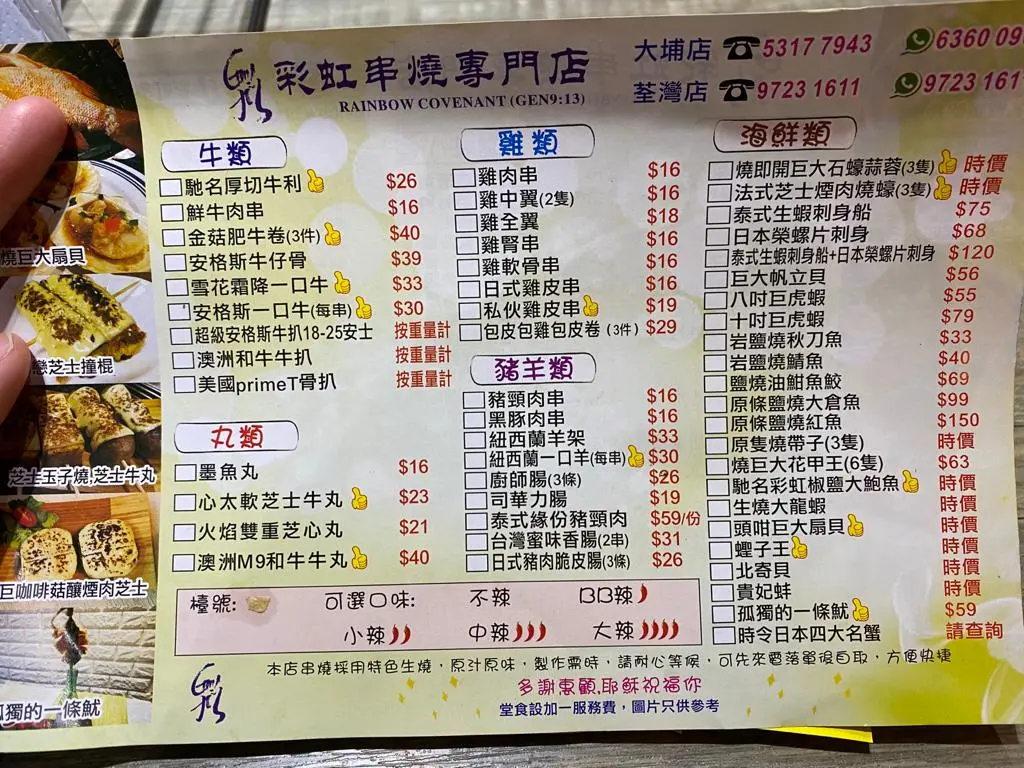 彩虹串燒專門店
RAINBOW COVENANT (GEN9:13)
大埔店 ☎5317 7943 6360 09
荃灣店 ☎9723 1611 9723 161
牛類
馳名厚切牛利 $26
鮮牛肉串 $16
金菇肥牛卷(3件) $40
安格斯牛仔骨 $39
雪花霜降一口牛 $33
安格斯一口牛(每串) $30
超級安格斯牛扒18-25安士 按重量計
澳洲和牛牛扒 按重量計
美國primeT骨扒 按重量計
丸類
墨魚丸 $16
心太軟芝士牛丸 $23
火焰雙重芝心丸 $21
澳洲M9和牛牛丸 $40
雞類
雞肉串 $16
雞中翼(2隻) $16
雞全翼 $18
雞腎串 $16
雞軟骨串 $16
日式雞皮串 $16
私伙雞皮串 $19
包皮包雞包皮卷 (3件) $29
豬羊類
豬頸肉串 $16
黑豚肉串 $16
紐西蘭羊架 $33
紐西蘭一口羊(每串) $30
廚師腸(3條) $26
司華力腸 $19
泰式緣份豬頸肉 $59/份
台灣蜜味香腸(2串) $31
日式豬肉脆皮腸(3條) $26
海鮮類
燒即開巨大石蠔蒜蓉(3隻) 時價
法式芝士煙肉燒蠔(3隻) 時價
泰式生蝦刺身船 $75
日本榮螺片刺身 $68
泰式生蝦刺身船+日本榮螺片刺身 $120
巨大帆立貝 $56
八吋巨虎蝦 $55
十吋巨虎蝦 $79
岩鹽燒秋刀魚 $33
岩鹽燒鯖魚 $40
鹽燒油甘魚鮫 $69
原條鹽燒大倉魚 $99
原條鹽燒紅魚 $150
原隻燒帶子(3隻) 時價
燒巨大花甲王(6隻) $63
馳名彩虹椒鹽大鮑魚 時價
生燒大龍蝦 時價
頭咁巨大扇貝 時價
蟶子王 時價
北寄貝 時價
貴妃蚌 時價
孤獨的一條魷 $59
時令日本四大名蟹 請查詢
檯號: 可選口味: 不辣 BB辣
小辣 中辣 大辣
本店串燒採用特色生燒，原汁原味，製作需時，請耐心等候，可先來電落單後自取，方便快捷
多謝惠顧,耶穌祝福你
堂食設加一服務費，圖片只供參考
燒巨大扇貝
戀芝士撞棍
芝士玉子燒,芝士牛丸
巨咖啡菇釀煙肉芝士
孤獨的一條魷